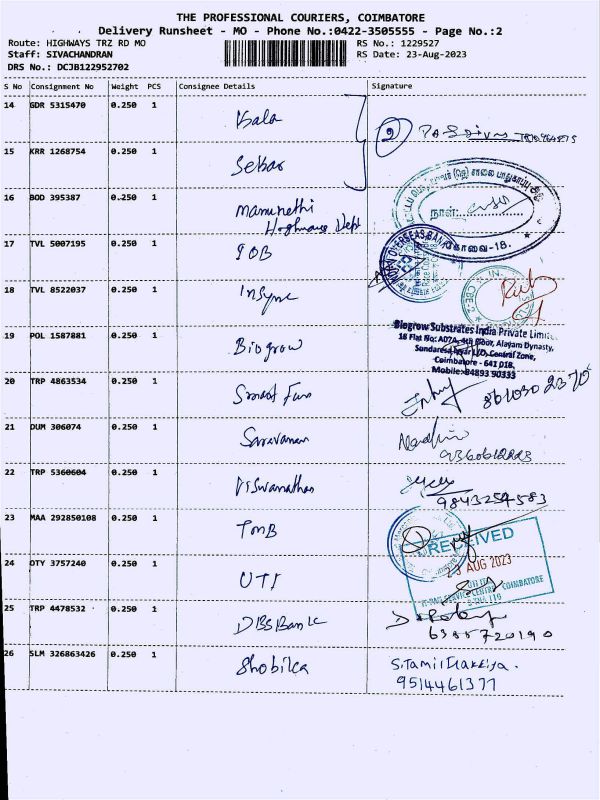 THE PROFESSIONAL COURIERS, COIMBATORE
Delivery Runsheet - MO - Phone No.:0422-3505555 - Page No.:2
Route: HIGHWAYS TRZ RD MO RS No.: 1229527
Staff: SIVACHANDRAN RS Date: 23-Aug-2023
DRS No.: DCJB122952702
S No Consignment No Weight PCS Consignee Details Signature
14 GDR 5315470 0.250 1 Kala
15 KRR 1268754 0.250 1 Sekar
16 BOD 395387 0.250 1
Highways Dept
நாள்:
கோவை-18.
17 TVL 5007195 0.250 1 IOB
OVERSEAS BANK
18 TVL 8522037 0.250 1 Insync
19 POL 1587881 0.250 1 Biogrow
Biogrow Substrates India Private Limited
18 Flat No: A07A, 4th floor, Alayam Dynasty,
Central Zone,
Coimbatore - 641 018.
Mobile: 84893 90333
20 TRP 4863534 0.250 1
21 DUM 306074 0.250 1 Saravanan
22 TRP 5360604 0.250 1 Viswanathan
9843254583
23 MAA 292850108 0.250 1 TMB
RECEIVED
23 AUG 2023
24 OTY 3757240 0.250 1 UTI
COIMBATORE
25 TRP 4478532 0.250 1 DBS Bank
6385720190
26 SLM 326863426 0.250 1 Shobika
S.Tamil Ilakkiya.
9514461377